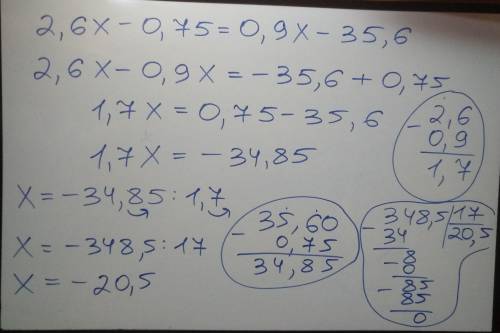 2,6x - 0,75 = 0,9x - 35,6
2,6x - 0,9x = -35,6 + 0,75
1,7x = 0,75 - 35,6
1,7x = -34,85
x = -34,85 : 1,7
x = -348,5 : 17
x = -20,5
- 2,6
0,9
1,7
- 35,60
0,75
34,85
- 348,5 | 17
34 | 20,5
- 8
0
- 85
85
0